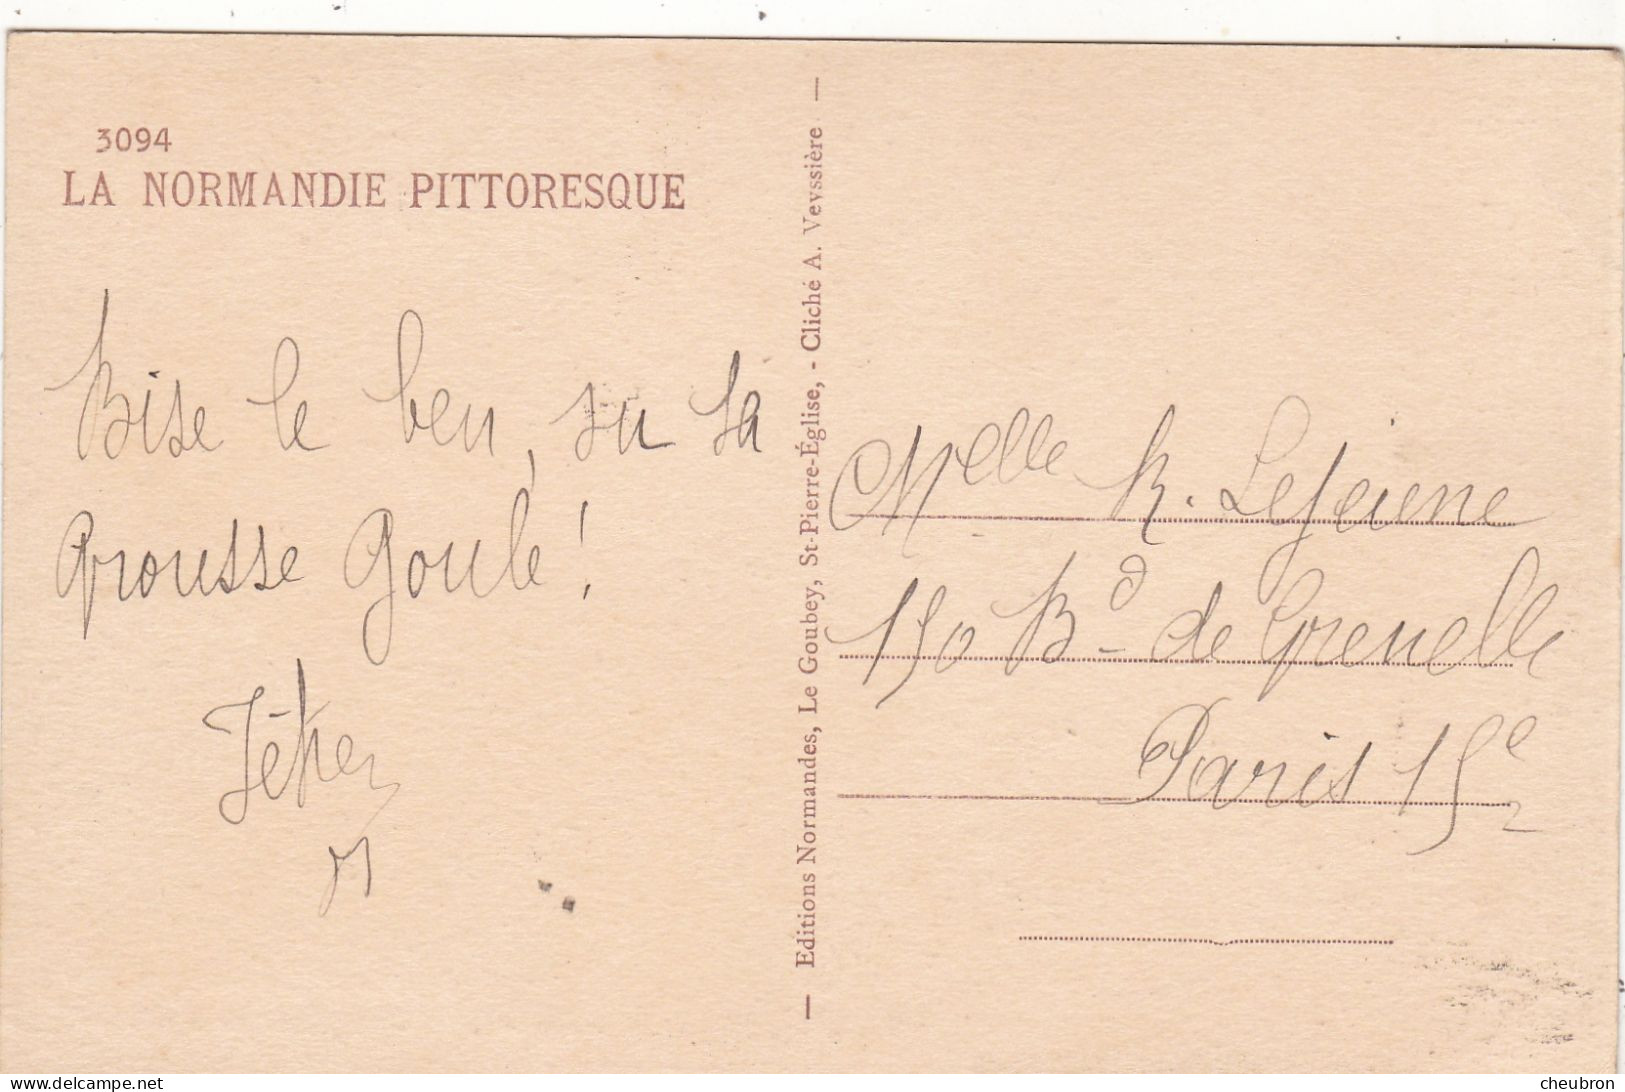 3094
LA NORMANDIE PITTORESQUE
Bise le ben, su sa
Grousse Goule!
Editions Normandes, Le Goubey, St-Pierre-Église, - Cliché A. Veyssière
Melle R. Lejeune
150 Bd de Grenelle
Paris 15e
cheubron